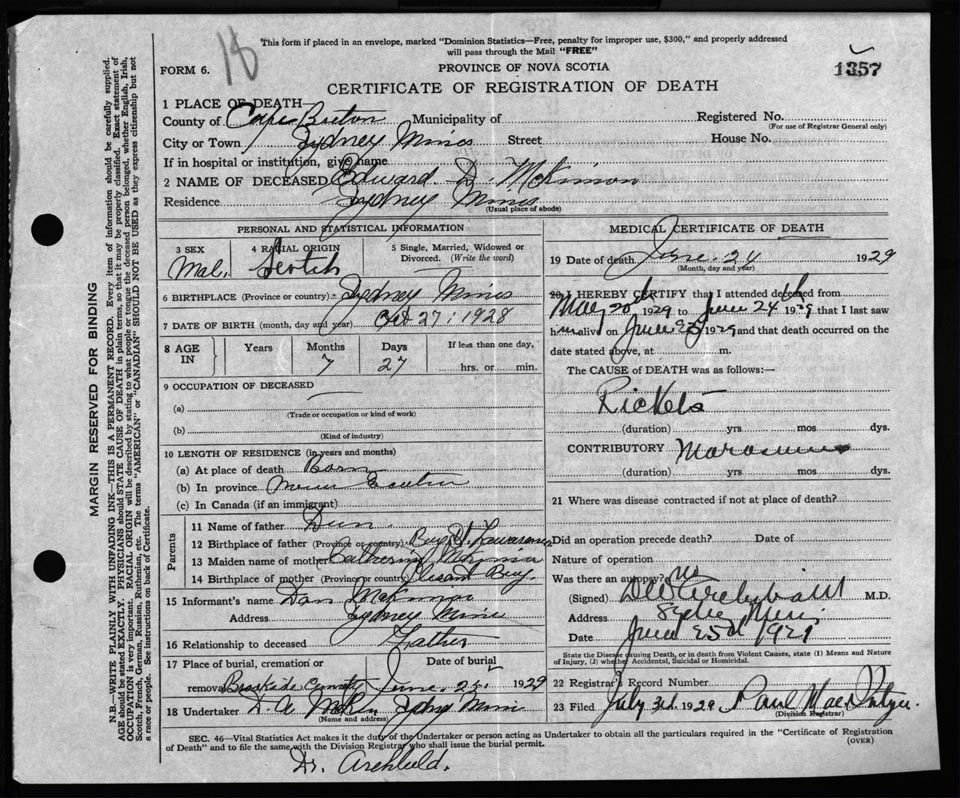 18
This form if placed in an envelope, marked "Dominion Statistics—Free, penalty for improper use, $300," and properly addressed
will pass through the Mail "FREE"
FORM 6.
PROVINCE OF NOVA SCOTIA
1357
CERTIFICATE OF REGISTRATION OF DEATH
MARGIN RESERVED FOR BINDING
N.B.—WRITE PLAINLY WITH UNFADING INK—THIS IS A PERMANENT RECORD. Every item of information should be carefully supplied.
AGE should be stated EXACTLY. PHYSICIANS should STATE CAUSE OF DEATH in plain terms, so that it may be properly classified. Exact statement of
OCCUPATION is very important. RACIAL ORIGIN will be described by stating to what people or tongue the deceased person belonged, whether English, Irish,
Scotch, French, German, Russian, Ruthenian, etc. The terms "AMERICAN" or "CANADIAN" SHOULD NOT BE USED as they express citizenship but not
a race or people. See instructions on back of Certificate.
1 PLACE OF DEATH—
County of Cape Breton Municipality of Registered No.
(For use of Registrar General only)
City or Town Sydney Mines Street House No.
If in hospital or institution, give name
2 NAME OF DECEASED Edward D. McKinnon
Residence Sydney Mines
(Usual place of abode)
PERSONAL AND STATISTICAL INFORMATION
3 SEX 4 RACIAL ORIGIN 5 Single, Married, Widowed or
Divorced. (Write the word)
Mal. Scotch
6 BIRTHPLACE (Province or country) Sydney Mines
7 DATE OF BIRTH (month, day and year) Oct 27: 1928
8 AGE IN Years Months Days If less than one day,
7 27 hrs. or min.
9 OCCUPATION OF DECEASED
(a)
(Trade or occupation or kind of work)
(b)
(Kind of industry)
10 LENGTH OF RESIDENCE (in years and months)
(a) At place of death Born
(b) In province Nova Scotia
(c) In Canada (if an immigrant)
Parents
11 Name of father Dan
12 Birthplace of father (Province or country)
13 Maiden name of mother Catherine
14 Birthplace of mother (Province or country)
15 Informant's name Dan McKinnon
Address Sydney Mines
16 Relationship to deceased Father
17 Place of burial, cremation or Date of burial
removal Brookside June 25 1929
18 Undertaker Sydney Mines
(Name and address)
MEDICAL CERTIFICATE OF DEATH
19 Date of death June 24 1929
(Month, day and year)
20 I HEREBY CERTIFY that I attended deceased from
May 20th 1929 to June 24th 1929 that I last saw
him alive on June 1929 and that death occurred on
date stated above, at m.
The CAUSE of DEATH was as follows:—
Rickets
(duration) yrs mos dys.
CONTRIBUTORY Marasmus
(duration) yrs mos dys.
21 Where was disease contracted if not at place of death?
Did an operation precede death? Date of
Nature of operation
Was there an autopsy? no
(Signed) Archibald M.D.
Address Sydney Mines
Date June 25th 1929
State the Disease causing Death, or in death from Violent Causes, state (1) Means and Nature
of Injury, (2) whether Accidental, Suicidal or Homicidal.
22 Registrar's Record Number
23 Filed July 3rd. 1929
(Division Registrar)
SEC. 46—Vital Statistics Act makes it the duty of the Undertaker or person acting as Undertaker to obtain all the particulars required in the "Certificate of Registration
of Death" and to file the same with the Division Registrar who shall issue the burial permit. (OVER)
Dr. Archbld.